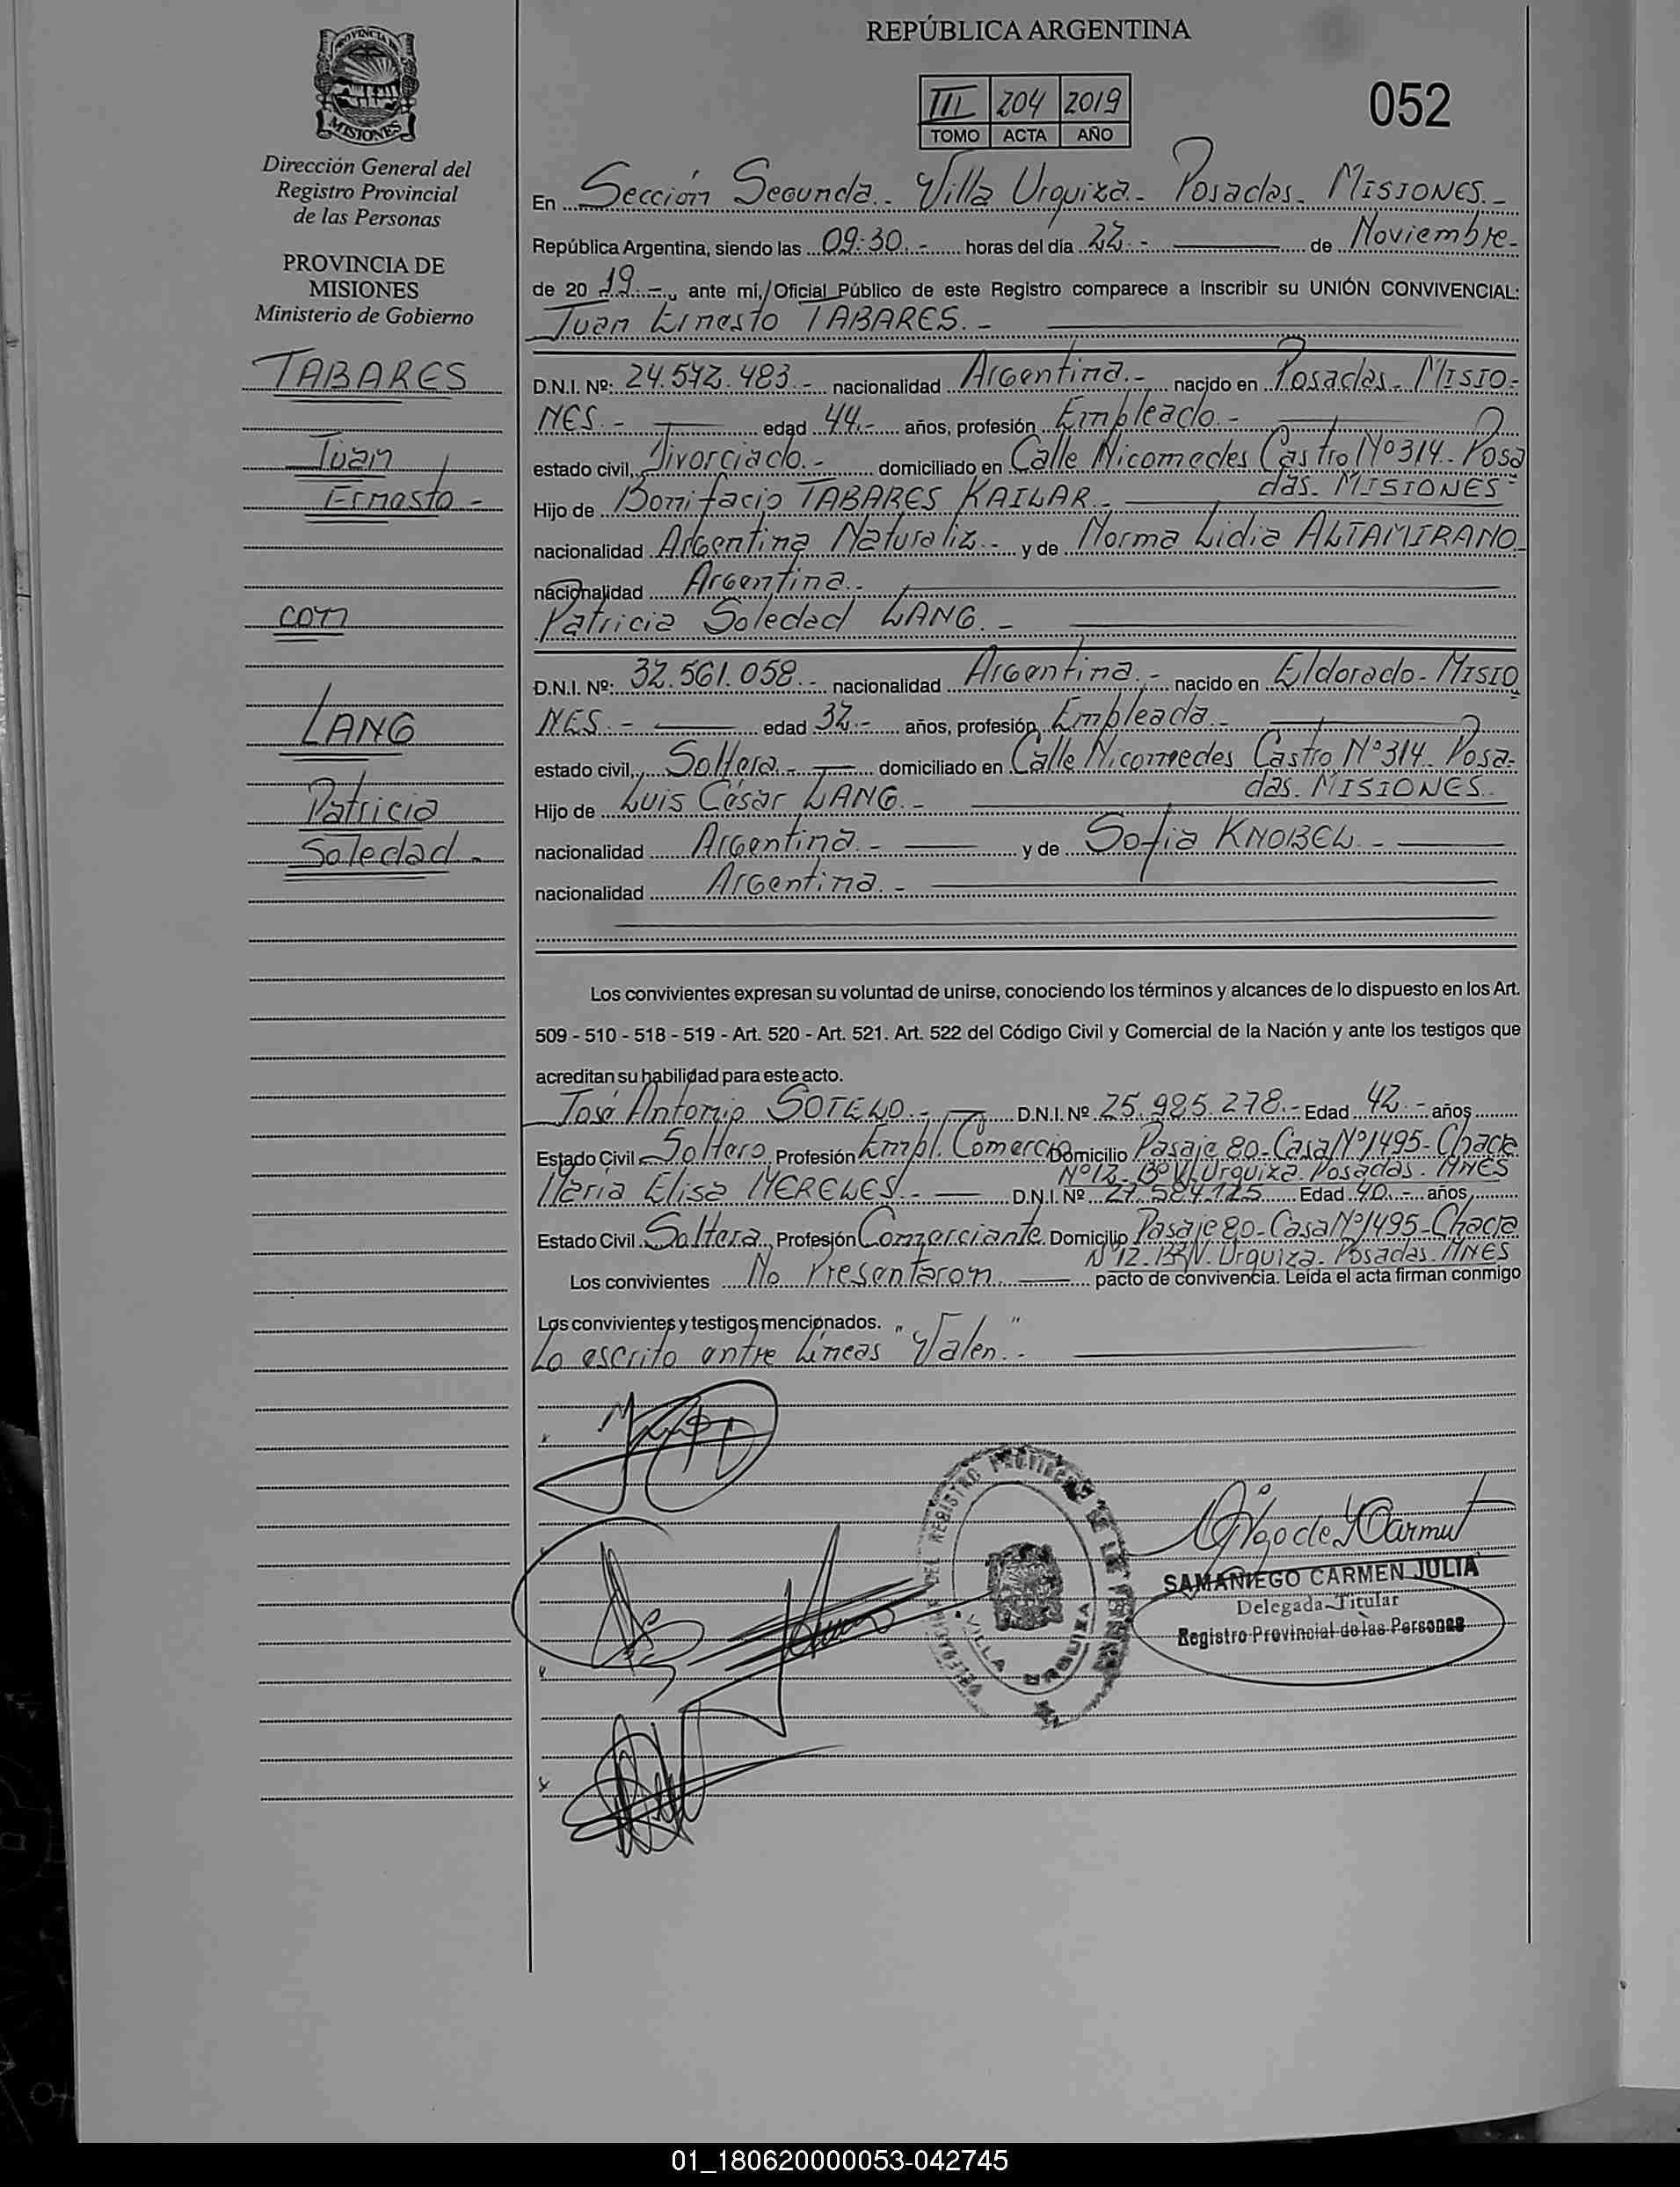 REPÚBLICA ARGENTINA
III 204 2019
TOMO ACTA AÑO
052
MISIONES
Dirección General del
Registro Provincial
de las Personas
PROVINCIA DE
MISIONES
Ministerio de Gobierno
TABARES
Juan
Ernesto -
con
LANG
Patricia
Soledad -
En Sección Segunda.- Villa Urquiza.- Posadas. MISIONES.-
República Argentina, siendo las 09:30.- horas del día 22.- de Noviembre-
de 20 19.-, ante mí, Oficial Público de este Registro comparece a Inscribir su UNIÓN CONVIVENCIAL:
Juan Ernesto TABARES.-
D.N.I. Nº: 24.542.483.- nacionalidad Argentina.- nacido en Posadas. MISIO-
NES.- edad 44.- años, profesión Empleado.-
estado civil, Divorciado.- domiciliado en Calle Nicomedes Castro Nº 314. Posa
das. MISIONES-
Hijo de Bonifacio TABARES KAILAR.-
nacionalidad Argentina Naturaliz.- y de Norma Lidia ALTAMIRANO.-
nacionalidad Argentina.-
Patricia Soledad LANG.-
D.N.I. Nº: 32.561.058.- nacionalidad Argentina.- nacido en Eldorado- MISIO
NES.- edad 32.- años, profesión Empleada.-
estado civil, Soltera.- domiciliado en Calle Nicomedes Castro Nº 314. Posa-
das. MISIONES.
Hijo de Luis César LANG.-
nacionalidad Argentina.- y de Sofia KNOBEL.-
nacionalidad Argentina.-
Los convivientes expresan su voluntad de unirse, conociendo los términos y alcances de lo dispuesto en los Art.
509 - 510 - 518 - 519 - Art. 520 - Art. 521. Art. 522 del Código Civil y Comercial de la Nación y ante los testigos que
acreditan su habilidad para este acto.
José Antonio SOTELO.- D.N.I. Nº 25.985.278.- Edad 42.- años
Estado Civil Soltero Profesión Empl. Comercio Domicilio Pasaje 80- Casa Nº 1495- Chacra
Nº 12- Bº V. Urquiza. Posadas. MNES
María Elisa MERELES.- D.N.I. Nº 27.584.125 Edad 40.- años,
Estado Civil Soltera, Profesión Comerciante. Domicilio Pasaje 80- Casa Nº 1495- Chacra
Nº 12. Bº V. Urquiza. Posadas. MNES
Los convivientes No Presentaron pacto de convivencia. Leída el acta firman conmigo
Los convivientes y testigos mencionados.
Lo escrito entre Líneas "Valen".-
VILLA URQUIZA
SAMANIEGO CARMEN JULIA
Delegada Titular
Registro Provincial de las Personas
01_180620000053-042745